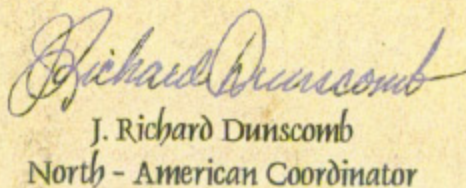 J. Richard Dunscomb
J. Richard Dunscomb
North - American Coordinator